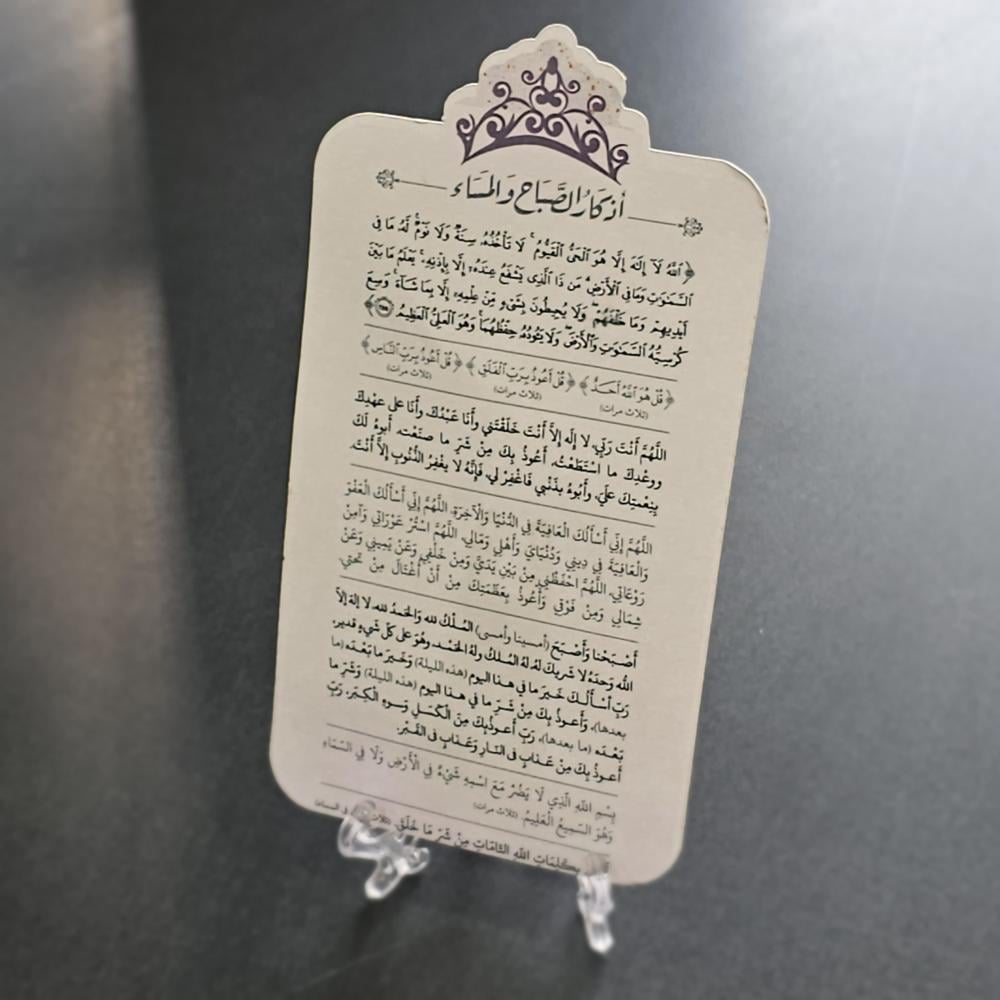 أذكار الصَّبَاح وَالمَسَاء
﴿ٱللَّهُ لَآ إِلَٰهَ إِلَّا هُوَ ٱلْحَىُّ ٱلْقَيُّومُ ۚ لَا تَأْخُذُهُۥ سِنَةٌ وَلَا نَوْمٌ ۚ لَّهُۥ مَا فِى
ٱلسَّمَٰوَٰتِ وَمَا فِى ٱلْأَرْضِ ۗ مَن ذَا ٱلَّذِى يَشْفَعُ عِندَهُۥٓ إِلَّا بِإِذْنِهِۦ ۚ يَعْلَمُ مَا بَيْنَ
أَيْدِيهِمْ وَمَا خَلْفَهُمْ ۖ وَلَا يُحِيطُونَ بِشَىْءٍ مِّنْ عِلْمِهِۦٓ إِلَّا بِمَا شَآءَ ۚ وَسِعَ
كُرْسِيُّهُ ٱلسَّمَٰوَٰتِ وَٱلْأَرْضَ ۖ وَلَا يَـُٔودُهُۥ حِفْظُهُمَا ۚ وَهُوَ ٱلْعَلِىُّ ٱلْعَظِيمُ ٢٥٥﴾
﴿قُلْ هُوَ ٱللَّهُ أَحَدٌ﴾ ﴿قُلْ أَعُوذُ بِرَبِّ ٱلْفَلَقِ﴾ ﴿قُلْ أَعُوذُ بِرَبِّ ٱلنَّاسِ﴾
(ثلاث مرات) (ثلاث مرات) (ثلاث مرات)
اللَّهُمَّ أَنْتَ رَبِّي، لا إِلَه إِلاَّ أَنْتَ خَلَقْتَني وأَنَا عَبْدُكَ، وأَنَا على عهْدِكَ
ووعْدِكَ ما اسْتَطَعْتُ، أَعُوذُ بِكَ مِنْ شَرِّ ما صنَعْت، أَبوءُ لَكَ
بِنِعْمتِكَ علَيَّ، وأَبُوءُ بذَنْبي فَاغْفِرْ لي، فَإِنَّهُ لا يغْفِرُ الذُّنُوبِ إِلاَّ أَنْتَ.
اللَّهُمَّ إِنِّي أَسْأَلُكَ الْعَافِيَةَ فِي الدُّنْيَا وَالْآخِرَةِ، اللَّهُمَّ إِنِّي أَسْأَلُكَ الْعَفْوَ
وَالْعَافِيَةَ فِي دِينِي وَدُنْيَايَ وَأَهْلِي وَمَالِي، اللَّهُمَّ اسْتُرْ عَوْرَاتِي وَآمِنْ
رَوْعَاتِي، اللَّهُمَّ احْفَظْنِي مِنْ بَيْنِ يَدَيَّ وَمِنْ خَلْفِي وَعَنْ يَمِينِي وَعَنْ
شِمَالِي وَمِنْ فَوْقِي وَأَعُوذُ بِعَظَمَتِكَ مِنْ أَنْ أُغْتَالَ مِنْ تَحْتِي.
أَصْبَحْنا وَأَصْبَحَ (أمسينا وأمسى) المُلْكُ لله وَالحَمدُ لله، لا إلهَ إلاّ
اللّه وَحدَهُ لا شَريكَ لهُ، لهُ المُلكُ ولهُ الحَمْد، وهُوَ على كلّ شَيءٍ قدير،
رَبِّ أسْأَلُكَ خَيرَ ما في هذا اليوم (هذه الليلة) وَخَيرَ ما بَعْدَه (ما
بعدها)، وَأَعوذُ بِكَ مِنْ شَرِّ ما في هذا اليوم (هذه الليلة) وَشَرِّ ما
بَعْدَه (ما بعدها)، رَبِّ أَعوذُبِكَ مِنَ الْكَسَلِ وَسوءِ الْكِبَر، رَبِّ
أَعوذُ بِكَ مِنْ عَذابٍ في النّارِ وَعَذابٍ في القَبْر.
بِسْمِ اللهِ الَّذِي لَا يَضُرُّ مَعَ اسْمِهِ شَيْءٌ فِي الْأَرْضِ وَلَا فِي السَّمَاءِ
وَهُوَ السَّمِيعُ الْعَلِيمُ. (ثلاث مرات)
بِكَلِمَاتِ اللَّهِ التَّامَّاتِ مِنْ شَرِّ مَا خَلَقَ. في المساء)